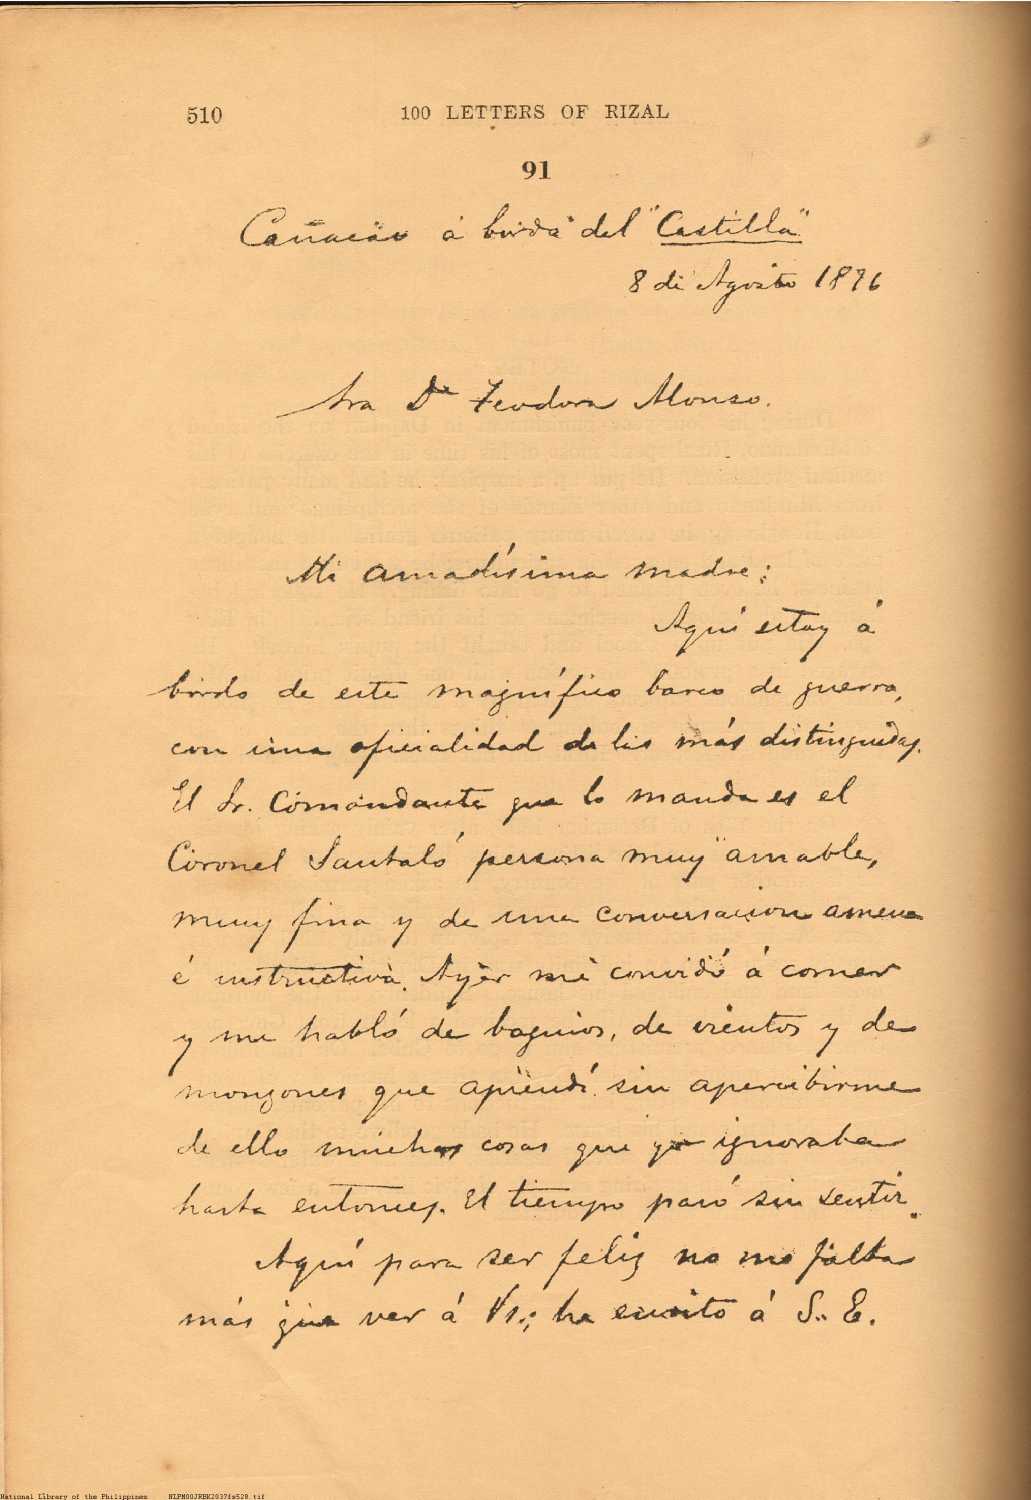 510 100 LETTERS OF RIZAL
91
Cañacao á bordo del "Castilla"
8 de Agosto 1896
Sra Dª Teodora Alonso.
Mi amadísima madre:
Aquí estoy á
bordo de este magnífico barco de guerra,
con una oficialidad de las más distinguidas.
El Sr. Comandante que lo manda es el
Coronel Santaló persona muy amable,
muy fina y de una conversacion amena
é instructiva. Ayer me convidó á comer
y me habló de baguios, de vientos y de
monzones que aprendí sin apercibirme
de ello muchas cosas que yo ignoraba
hasta entonces. El tiempo pasó sin sentir.
Aquí para ser feliz no me falta
más que ver á Vs.; he escrito á S. E.
National Library of the Philippines NLPM00JRBK2037fs528.tif